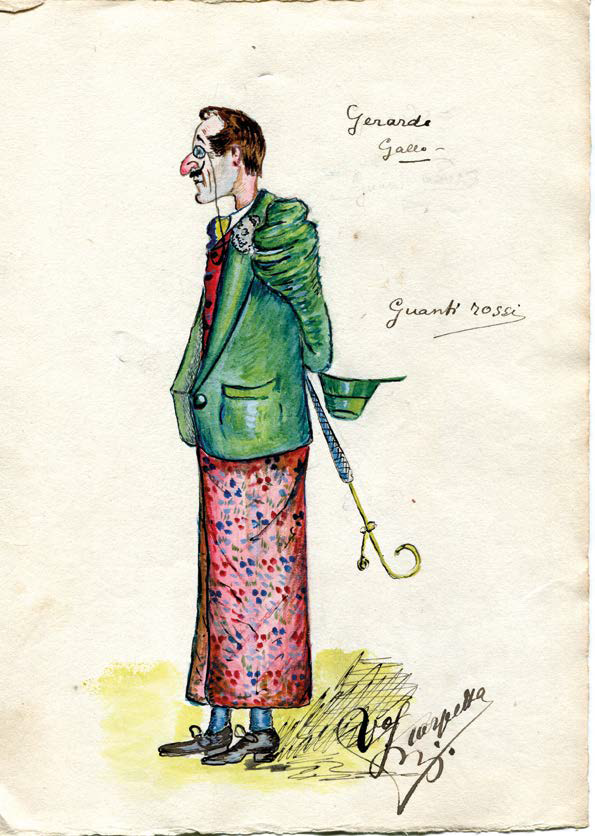 Gerardo
Gallo -
Guanti rossi
Scarpetta